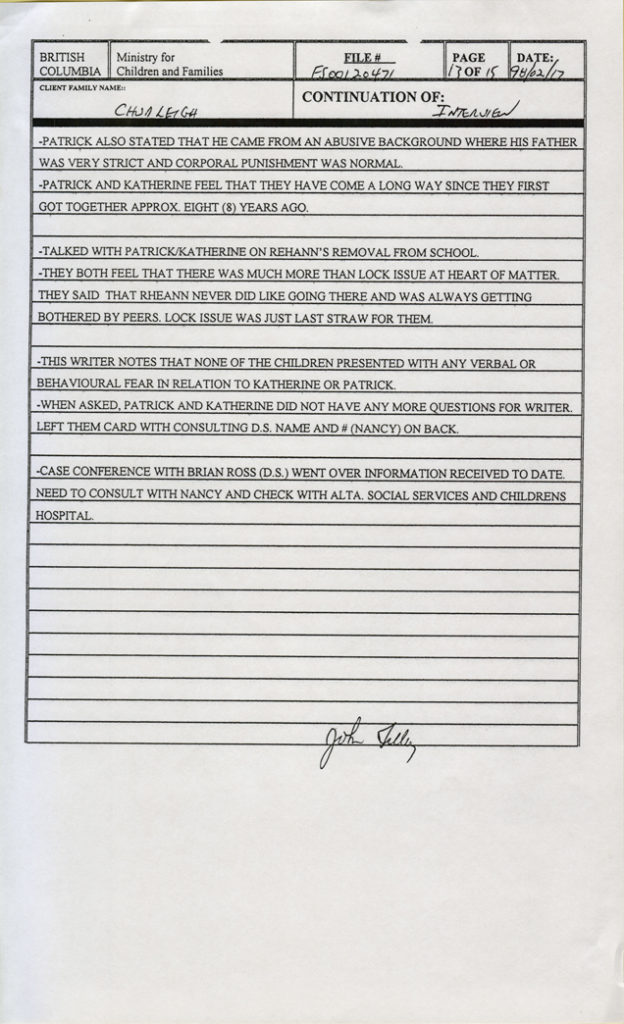 BRITISH COLUMBIA
Ministry for Children and Families
FILE #
FS00120471
PAGE
13 OF 15
DATE:
98/02/17
CLIENT FAMILY NAME::
CONTINUATION OF:
INTERVIEW
-PATRICK ALSO STATED THAT HE CAME FROM AN ABUSIVE BACKGROUND WHERE HIS FATHER
WAS VERY STRICT AND CORPORAL PUNISHMENT WAS NORMAL.
-PATRICK AND KATHERINE FEEL THAT THEY HAVE COME A LONG WAY SINCE THEY FIRST
GOT TOGETHER APPROX. EIGHT (8) YEARS AGO.
-TALKED WITH PATRICK/KATHERINE ON REHANN'S REMOVAL FROM SCHOOL.
-THEY BOTH FEEL THAT THERE WAS MUCH MORE THAN LOCK ISSUE AT HEART OF MATTER.
THEY SAID THAT RHEANN NEVER DID LIKE GOING THERE AND WAS ALWAYS GETTING
BOTHERED BY PEERS. LOCK ISSUE WAS JUST LAST STRAW FOR THEM.
-THIS WRITER NOTES THAT NONE OF THE CHILDREN PRESENTED WITH ANY VERBAL OR
BEHAVIOURAL FEAR IN RELATION TO KATHERINE OR PATRICK.
-WHEN ASKED, PATRICK AND KATHERINE DID NOT HAVE ANY MORE QUESTIONS FOR WRITER.
LEFT THEM CARD WITH CONSULTING D.S. NAME AND # (NANCY) ON BACK.
-CASE CONFERENCE WITH BRIAN ROSS (D.S.) WENT OVER INFORMATION RECEIVED TO DATE.
NEED TO CONSULT WITH NANCY AND CHECK WITH ALTA. SOCIAL SERVICES AND CHILDRENS
HOSPITAL.
John